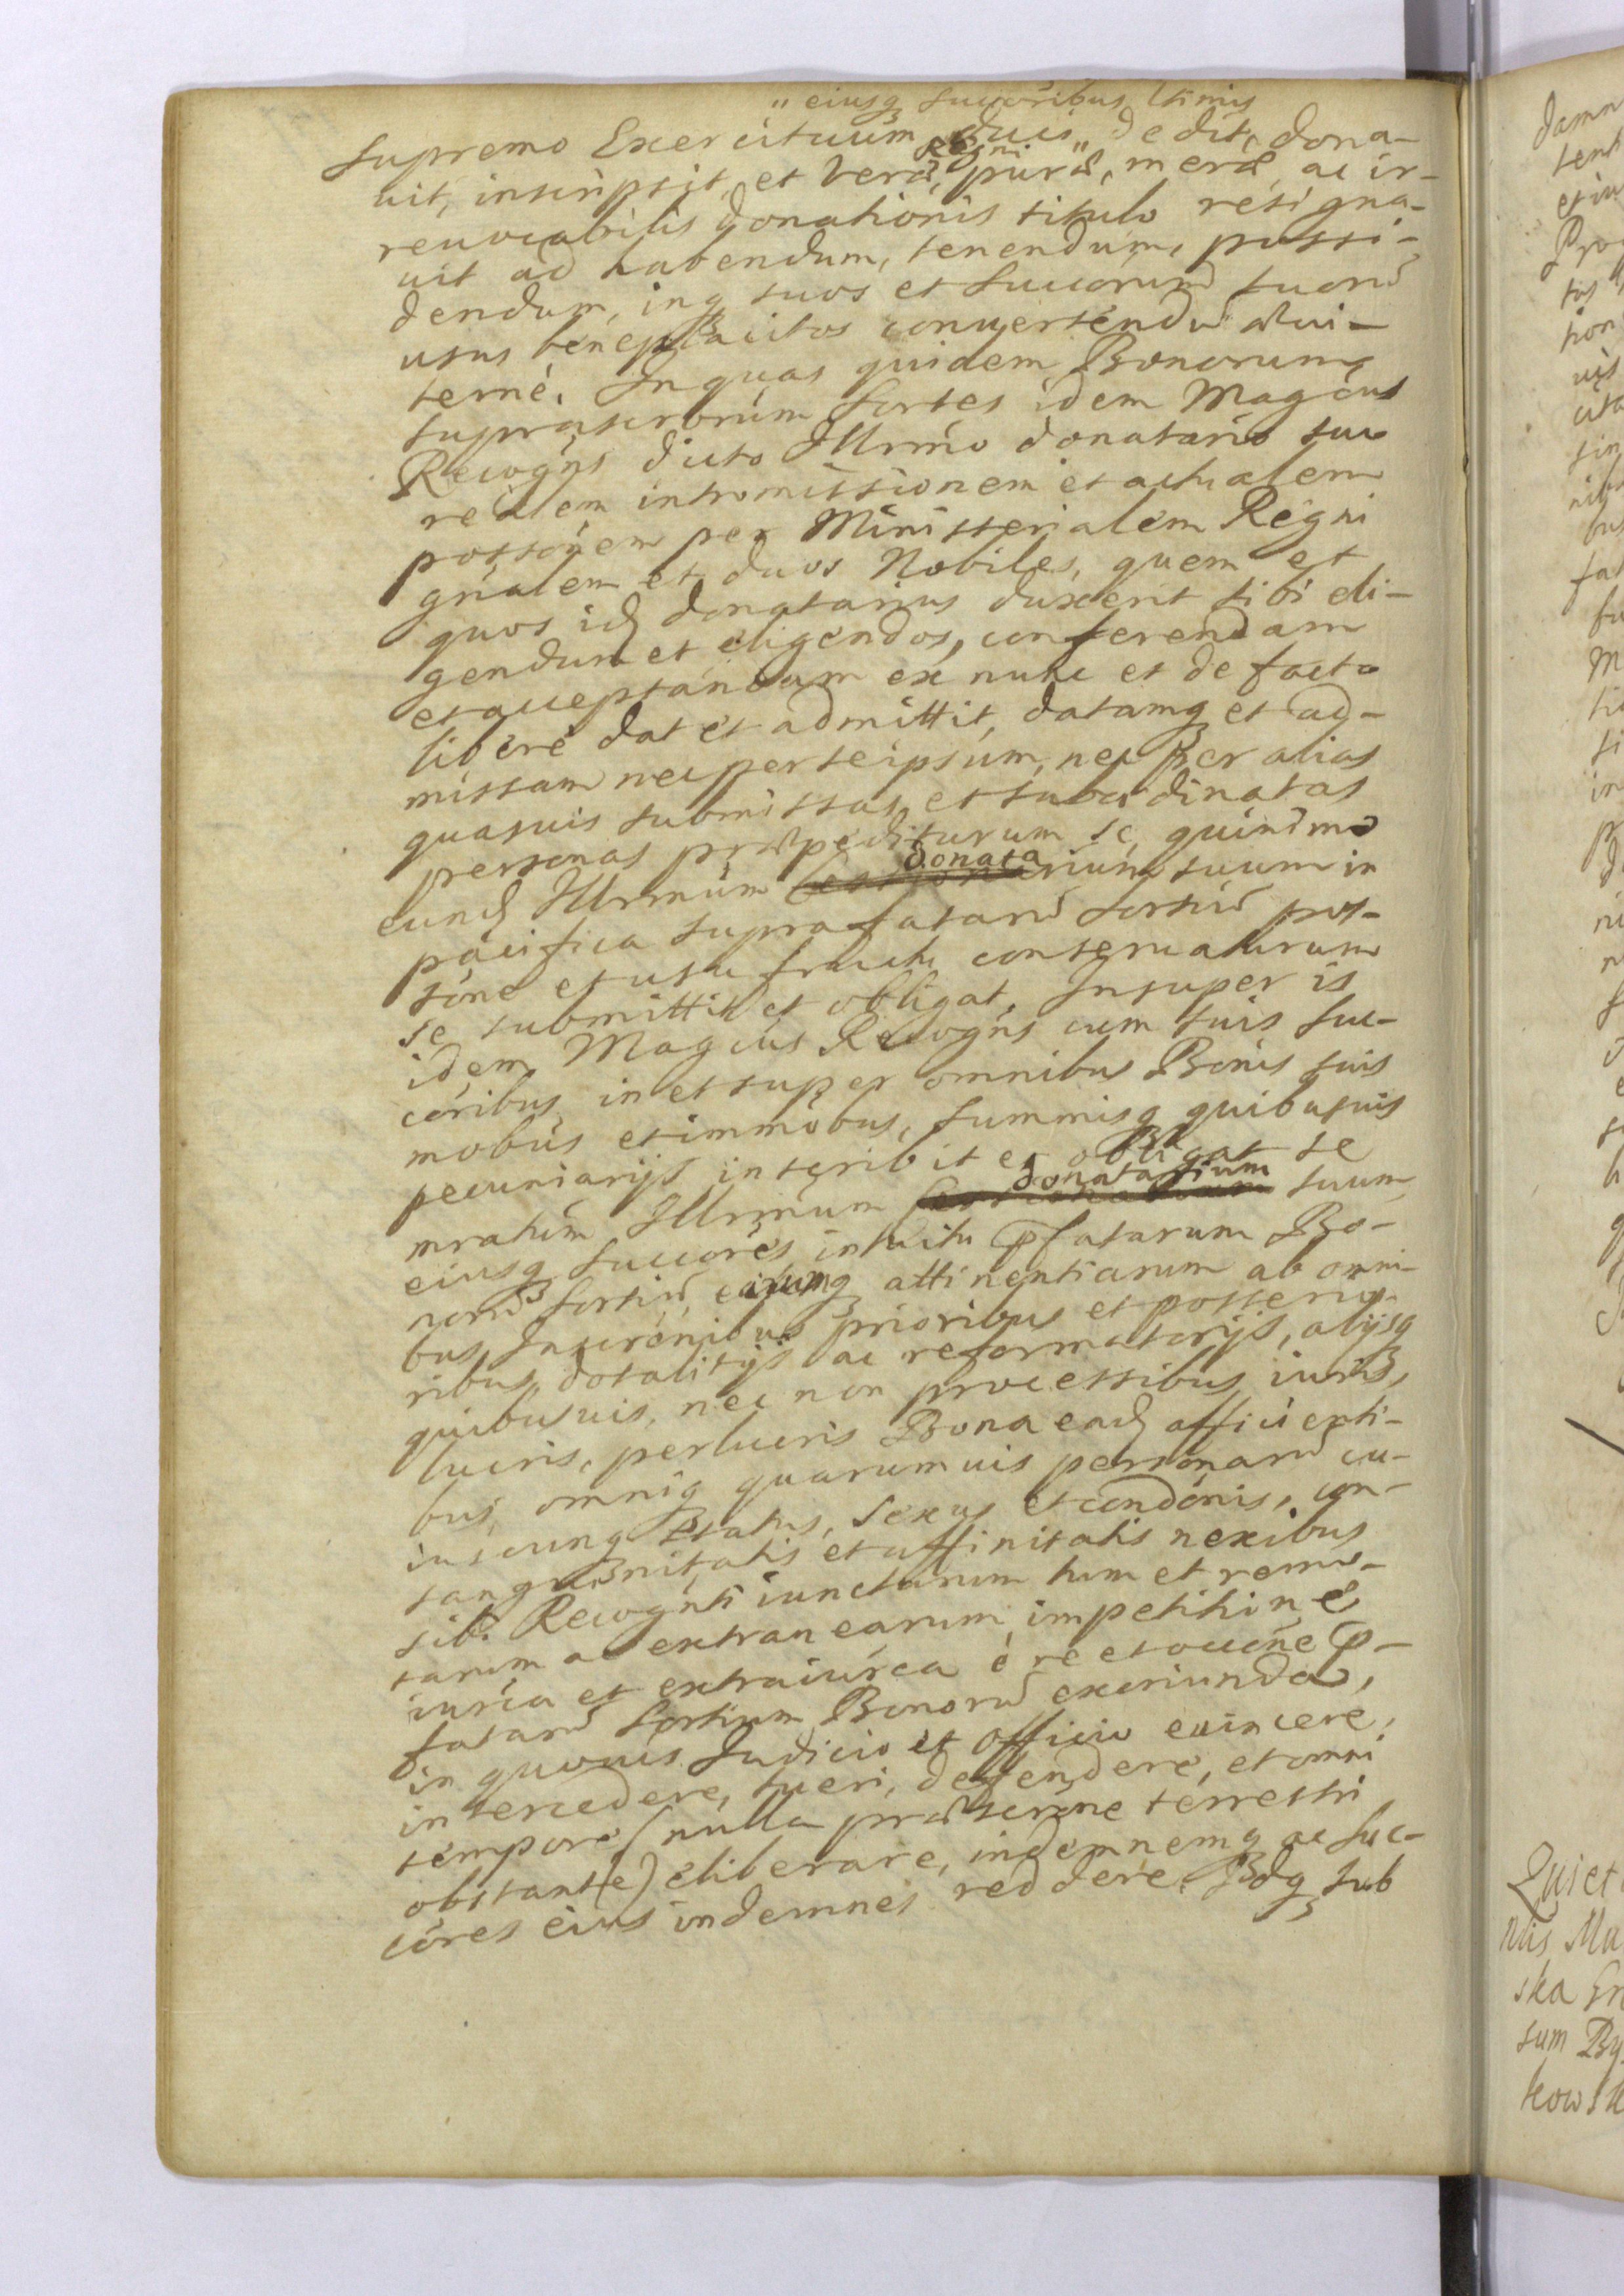 " eiusq succoribus ltimis
supremo Exercituum Regni Ducis " dedit, dona-
uit, inscripsit, et veræ, puræ, meræ, ac ir-
reuocabilis donationis titulo resigna-
uit ad habendum, tenendum, possi-
dendum, inq suos et succorum suorū
usus beneplacitos conuertendū æui-
terne. In quas quidem Bonorum
suprascrorum sortes idem Magcus
Recogns dicto Illrmo donatario suo
realem intromissionem et actualem
possonem per Ministerialem Regni
gnalem et duos Nobiles, quem et
quos idq donatarius duxerit sibi eli-
gendum et eligendos, conferendam
et acceptandam ex nunc et de facto
libere dat et admittit, datamq et ad-
missam nec per se ipsum, nec per alias
quasuis submissas et subordinatas
personas præpediturum se, quinimo
eundq Illrmum donatarium suum in
pacifica suprafatarū sortiū pos-
sone et usu fructu conseruaturum
se submittit et obligat. Insuper is
idem Magcus Recogns cum suis suc-
coribus in et super omnibus Bonis suis
mobus et immobus, summisq quibusuis
pecuniarijs inscribit et obligat se
mratum Illrmum donatarium suum
eiusq succores intuitu pfatarum Bo-
norū sortiū, earumq attinentiarum ab omni-
bus Inscronibus prioribus et posterio-
ribus, dotalitijs ac reformatorijs, alijsq
quibusuis, nec non processibus iuris,
lucris, perlucris Bona eadq afficienti-
bus, omniq quarumuis personarū cu-
iuscunq status, sexus et condonis, con-
sangunitatis et affinitatis nexibus
sibi Recognti iunctarum tum et remo-
tarum ac extranearum impetitine
iurica et extraiurica è re et occone p-
fatarū sortium Bonorū exoriunda,
in quouis Judicio et officio euincere,
intercedere, tueri, defendere, et omni
tempore (nulla præscrone terrestri
obstante) eliberare, indemnemq ac suc-
cores eius indemnes reddere. Idq sub